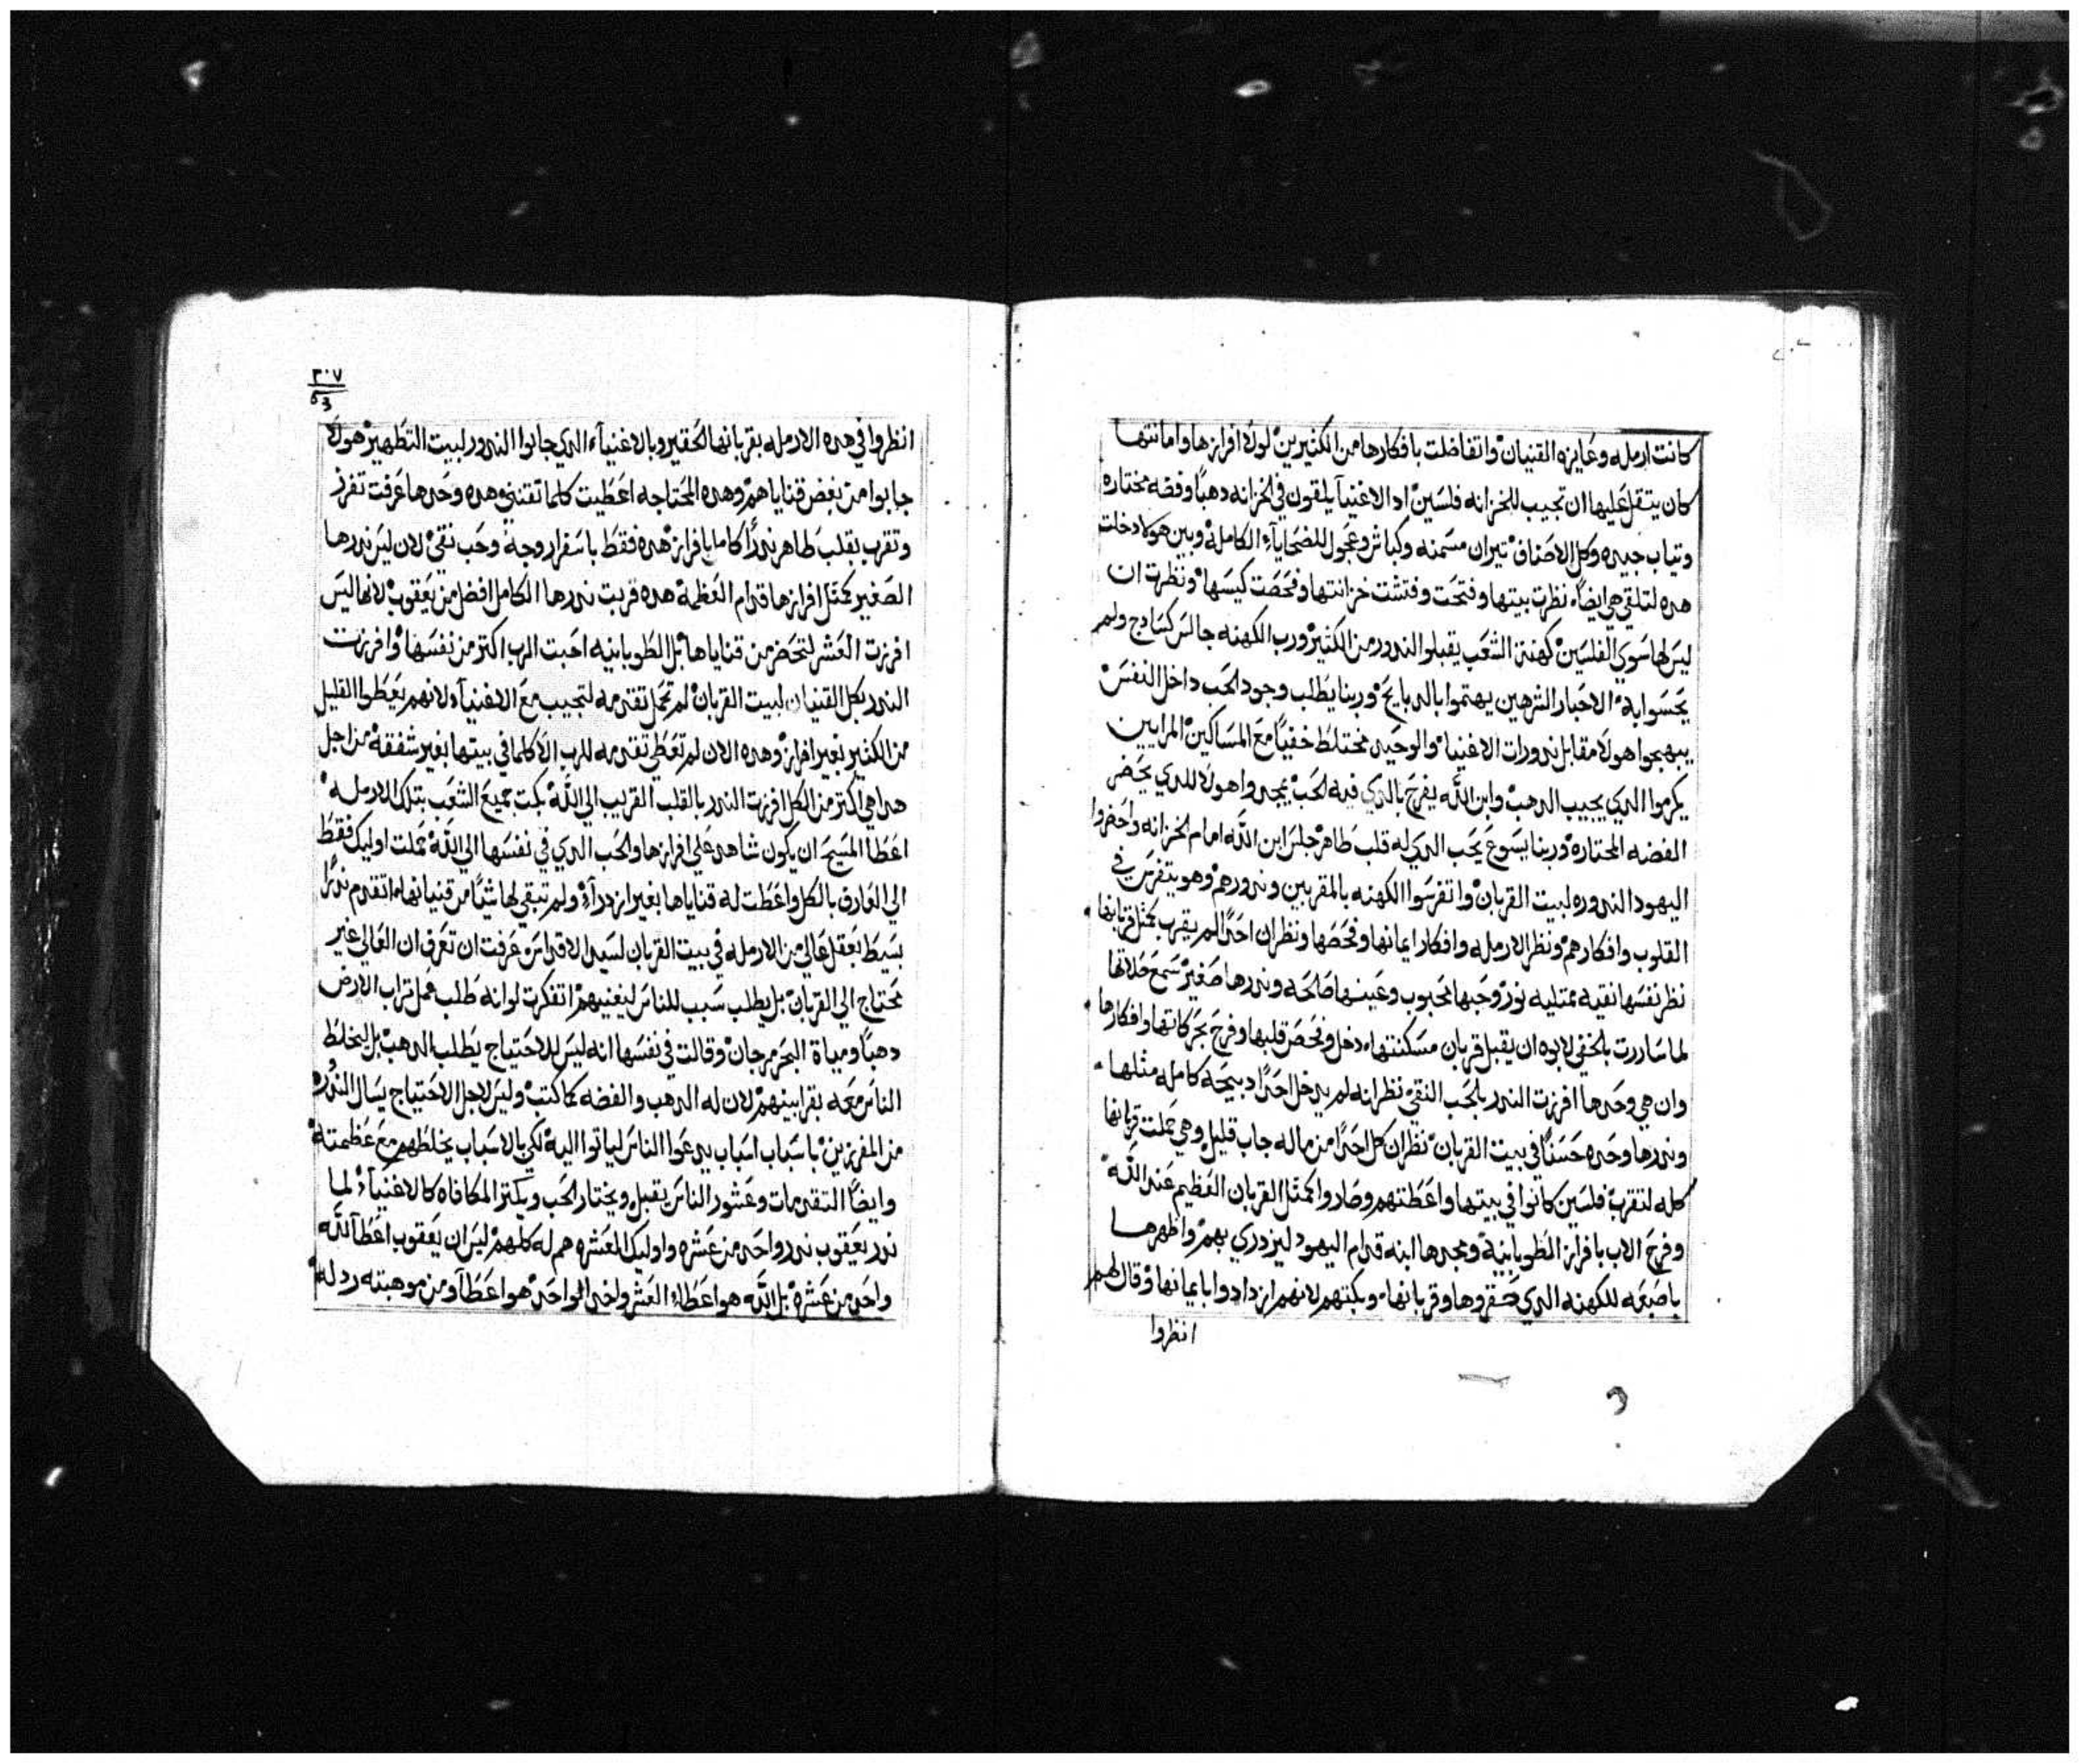 كانت ارمله وعايزه القنيان واتفاضلت بافكارها من الكثيرين لولا افرازها وامانتها
كان يتقل عليها ان تجيب للخزانه فلسين اد الاغنيآ يلقون في الخزانه دهبًا وفضه مختاره
وتياب جيده وكل الاصناف تيران مسمنه وكباش وعجول للضحاياء الكامله وبين هولا دخلت
هده لتلقي هي ايضًا نظرت بيتها وفتحت وفتشت خزانتها وفحصت كيسها ونظرت ان
ليس لها سوي الفلسين كهنة الشعب يقبلوا الندور من الكثير ورب الكهنه جالس كسادج ولم
يحسوا به الاحبار الشرهين يهتموا بالدبايح وربنا يطلب وجود الحب داخل النفس
يبهجوا هولا مقابل ندورات الاغنيا والوحيد مختلط خفيًا مع المساكين المرايين
يكرموا الدي يجيب الدهب وابن الله يفرح بالدي فيه الحب يمجدوا هولا للدي يحضر
الفضه المختاره وربنا يسوع يحب الدي له قلب طاهر جلس ابن الله امام الخزانه واحضروا
اليهود الندوره لبيت القربان واتفرسوا الكهنه بالمقربين وندورهم وهو يتفرس في
القلوب وافكارهم ونظر الارمله وافكار ايمانها وفحصها ونظر ان احدًا لم يقرب كمثل قربانها
نظر نفسها نقيه ممتليه نور وحبها محبوب وعينها صالحه وندرها صغير سمع صلاتها
لما ساررت بالخفي لابوه ان يقبل قربان مسكنتها دخل وفحص قلبها وفرح بحركاتها وافكارها
وان هي وحدها افرزت الندر بالحب النقي نظر انه لم يدخل احدًا دبيحه كامله مثلها
وندرها وحده حسنًا في بيت القربان نظر ان كل احدًا من ماله جاب قليل وهي حملت قربانها
كله لتقرب فلسين كانوا في بيتها واعطتهم وصاروا كمثل القربان العظيم عند الله
وفرح الاب بافراز الطوبانية ومجدها ابنه قدام اليهود ليزدري بهم واظهرها
باصبعه للكهنه الدي حقروها وقربانها وبكتهم لانهم ازدادوا بايمانها وقال لهم
انظروا
٣٠٧
انظروا في هده الارمله بقربانها الحقير وبالاغنيآء الدي جابوا الندور لبيت التطهير هولا
جابوا من بعض قناياهم وهده المحتاجه اعطيت كلما تقتني وهده وحدها عرفت تفرز
وتقرب بقلب طاهر ندرًا كاملا بافراز هده فقط باسفرار وجهة وحب نقي لان ليس ندرها
الصغير كمتل افرازها قدام العظمة هده قربت ندرها الكامل افضل من يعقوب لانها ليس
افرزت العشر لتحضر من قناياها بل الطوبانيه احبت الرب اكتر من نفسها وافرزت
الندر بكل القنيان لبيت القربان لم تحمل تقدمه لتجيب مع الاغنيآء لانهم يعطوا القليل
من الكثير بغير افراز وهده الان لم تعطي تقدمه للرب الا كلما في بيتها بغير شفقة من اجل
هدا هي اكتر من الكل افرزت الندر بالقلب القريب الي الله بكت جميع الشعب بتلك الارمله
اعطا المسيح ان يكون شاهد علي افرازها والحب الدي في نفسها الي الله حملت اوليك فقط
الي العارف بالكل واعطت له قناياها بغير ازدرآء ولم تبقي لها شيًا من قنيانها اتقدم ندرًا
بسيط بعقل عالي من الارمله في بيت القربان لسيد الاقداس وعرفت ان تعرف ان العالي غير
محتاج الي القربان بل يطلب سبب للناس ليغنيهم اتفكرت لوانه طلب عمل تراب الارض
دهبًا ومياة البحر مرجان وقالت في نفسها انه ليس للاحتياج يطلب الدهب بل ليخلط
الناس معه بقرابينهم لان له الدهب والفضه كما كتب وليس لاجل الاحتياج يسال الندوره
من المفرزين باسباب اسباب يدعوا الناس لياتوا اليه لكي بالاسباب يخلطهم مع عظمته
وايضًا التقدمات وعشور الناس يقبل ويختار الحب ويكتر المكافاه كالاغنيآء لما
ندر يعقوب ندر واحد من عشره واوليك العشره هم له كلهم ليس ان يعقوب اعطا الله
واحد من عشره بل الله هو اعطاء العشر واخد الواحد هو اعطآ ومن موهبته رد له